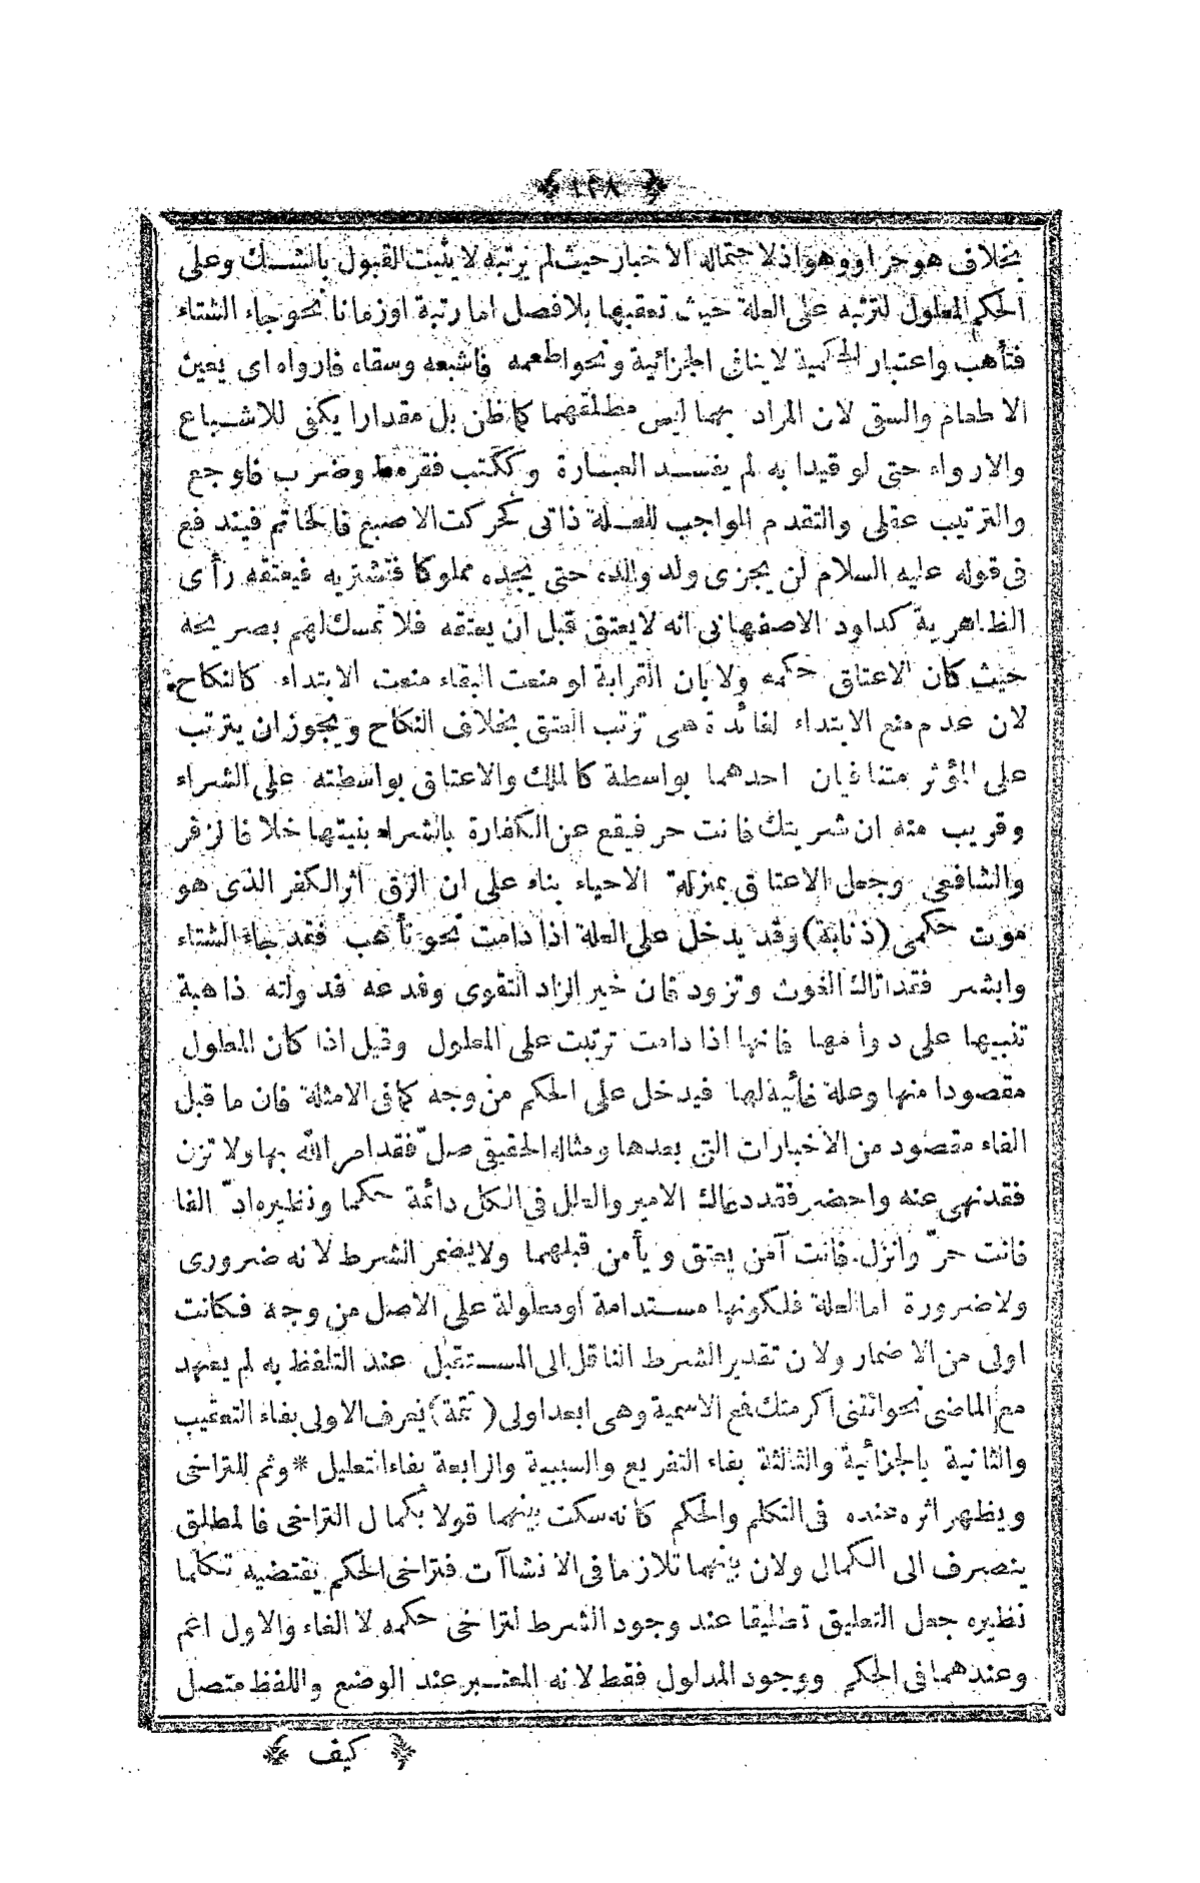 ١٢٨
بخلاف هو حر او وهو اذ لا حتماله الاخبار حيث لم يرتبه لا يثبت القبول بالشك وعلى
الحكم المعلول لترتبه على العلة حيث تعقبها بلا فصل اما رتبة او زمانا نحو جاء الشتاء
فتأهب واعتبار الحكمية لا ينافى الجزائية ونحو اطعمه فاشبعه وسقاه فارواه اى بعين
الاطعام والسقى لان المراد بهما ليس مطلقهما كما ظن بل مقدارا يكفى للاشباع
والارواء حتى لو قيدا به لم يفسد العبارة وككتب فقرمط وضرب فاوجع
والترتيب عقلى والتقدم الواجب للعلة ذاتى كحركت الاصبع فالخاتم فيندفع
فى قوله عليه السلام لن يجزى ولد والده حتى يجده مملوكا فتشتريه فيعتقه رأى
الظاهرية كداود الاصفهانى انه لا يعتق قبل ان يعتقه فلا تمسك لهم بصريحه
حيث كان الاعتاق حكمه ولا بان القرابة لو منعت البقاء منعت الابتداء كالنكاح
لان عدم منع الابتداء لفائدة هى ترتب العتق بخلاف النكاح ويجوز ان يترتب
على المؤثر متنافيان احدهما بواسطة كالملك والاعتاق بواسطته على الشراء
وقريب منه ان شريتك فانت حر فيقع عن الكفارة بالشراء بنيتها خلافا لزفر
والشافعى وجعل الاعتاق بمنزلة الاحياء بناء على ان الرق اثر الكفر الذى هو
موت حكمى (ذنابة) وقد يدخل على العلة اذا دامت نحو تأهب فقد جاء الشتاء
وابشر فقد اتاك الغوث وتزود فان خير الزاد التقوى وفدعه فدولته ذاهبة
تنبيها على دوامها فانها اذا دامت ترتبت على المعلول وقيل اذا كان المعلول
مقصودا منها وعلة غائية لها فيدخل على الحكم من وجه كما فى الامثلة فان ما قبل
الفاء مقصود من الاخبارات التى بعدها ومثاله الحقيقى صلّ فقد امر الله بها ولا تزن
فقد نهى عنه واحضر فقد دعاك الامير والعلل فى الكل دائمة حكما ونظيره ادّ الفا
فانت حرّ وانزل فانت آمن يعتق ويأمن قبلهما ولا يضمر الشرط لانه ضرورى
ولا ضرورة اما العلة فلكونها مستدامة او معلولة على الاصل من وجه فكانت
اولى من الاضمار ولان تقدير الشرط الناقل الى المستقبل عند التلفظ به لم يعهد
مع الماضى نحو ائتنى اكرمتك فمع الاسمية وهى ابعد اولى (تتمة) يعرف الاولى بفاء التعقيب
والثانية بالجزائية والثالثة بفاء التفريع والسببية والرابعة بفاء التعليل * وثم للتراخى
ويظهر اثره عنده فى التكلم والحكم كانه سكت بينهما قولا بكمال التراخى فالمطلق
ينصرف الى الكمال ولان بينهما تلازما فى الانشاآت فتراخى الحكم يقتضيه تكلما
نظيره جعل التعليق تطليقا عند وجود الشرط لتراخى حكمه لا الفاء والاول اعم
وعندهما فى الحكم ووجود المدلول فقط لانه المعتبر عند الوضع واللفظ متصل
كيف